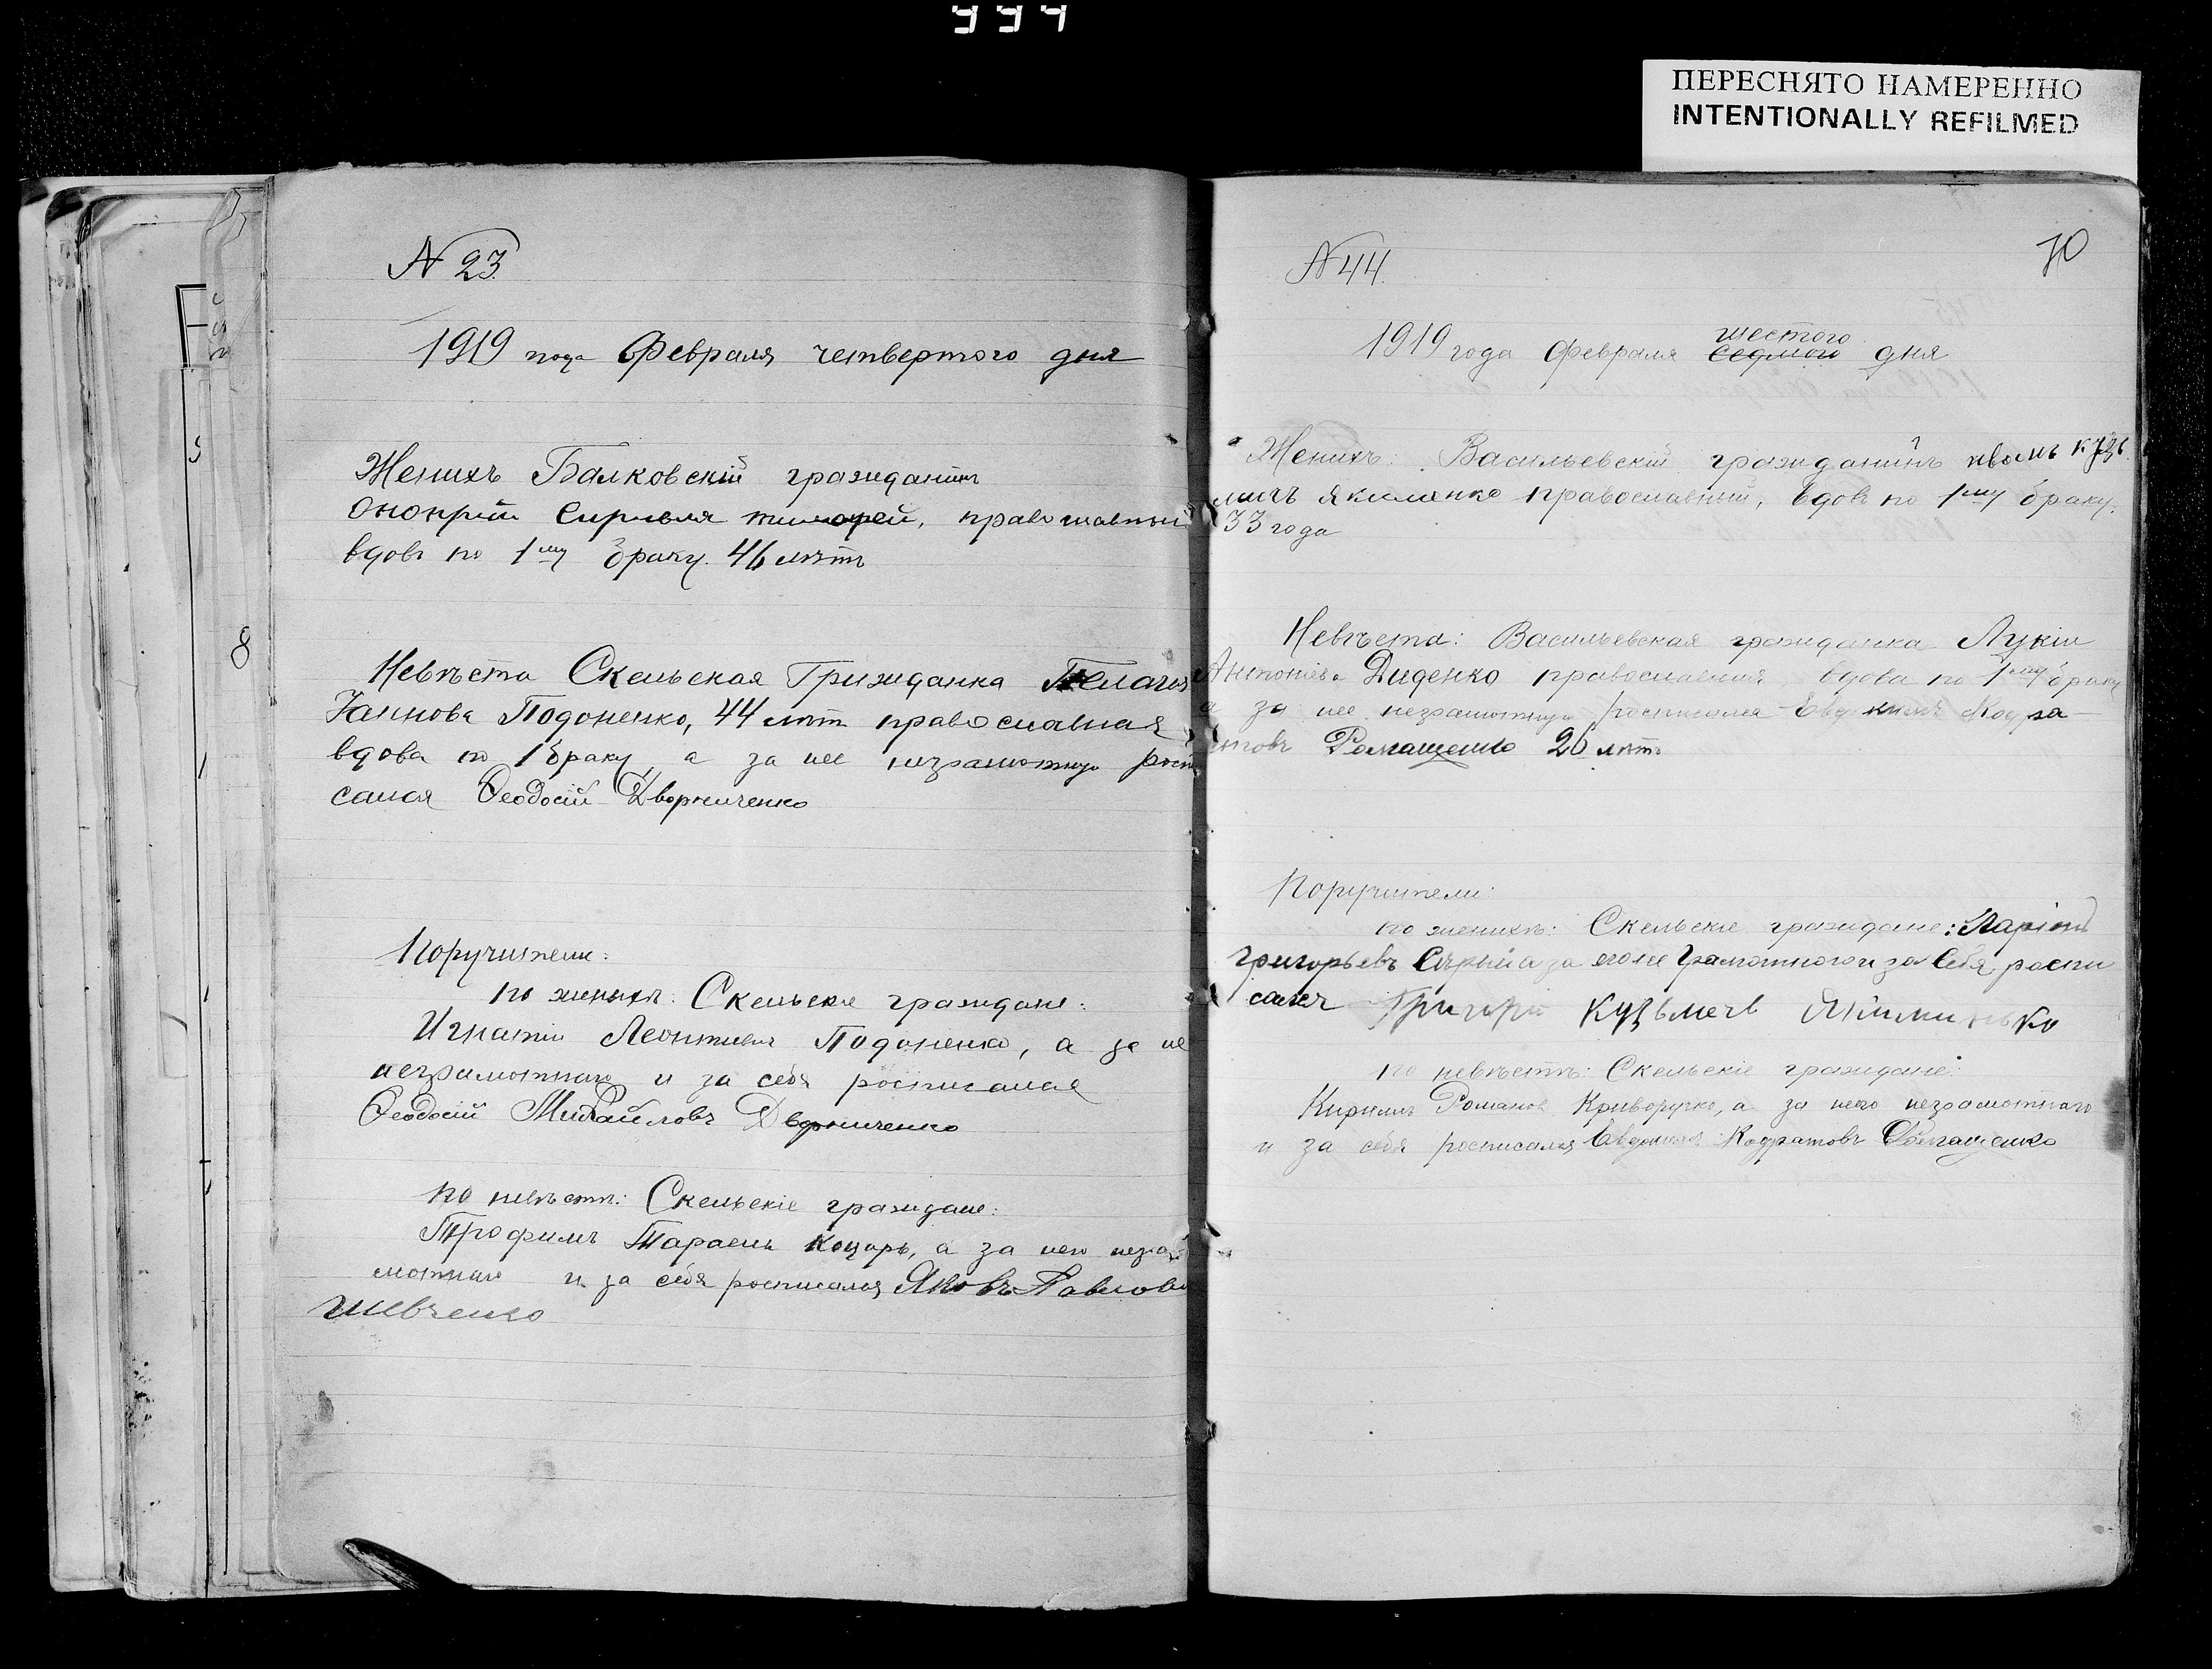 994
ПЕРЕСНЯТО НАМЕРЕННО
INTENTIONALLY REFILMED
8
N 23.
1919 года Февраля четвертого дня
Женихъ Балковскій гражданинъ
Онопрій православный
вдовъ по 1му браку. 46 лѣтъ
Невѣста Скельская Гражданка Пелагея
Іаннова Подоненко, 44 лѣт православная
вдова по 1 браку, а за нее неграмотную роспи
сался Ѳеодосій Дворниченко
Поручители:
по женихѣ: Скельскіе граждане:
Игнатій Леонтиевъ Подоненко, а за не
неграмотнаго и за себя росписался
Ѳеодосій Михайловъ Дворниченко
по невѣстѣ: Скельскіе граждане:
Трофимъ Тарасив Коцарь, а за него негра
мотнаго и за себя росписался Яковъ Павловъ
Шевченко
70
N 44.
1919 года Февраля шестого
седмого дня
Женихъ: Васильевскій гражданинъ иванъ Кузь
мичъ Якименко православный, вдовъ по 1му браку.
33 года
Невѣста: Васильевская гражданка Лукія
Антоніева Диденко православная вдова по 1му браку
а за нее неграмотную росписался Евдокимъ Кодра
товъ Ромащенко 26 лѣтъ
Поручители:
по женихѣ: Скельскіе граждане: Ларіонъ
Григорьевъ Сѣрый а за его не Грамотного и за Себя роспи
сался Григори Кузьмечъ
по невѣстѣ: Скельскіе граждане:
Кирилъ Романов Криворучко, а за него неграмотнаго
и за себя росписался Евдоким Кодратовъ Ромащенко